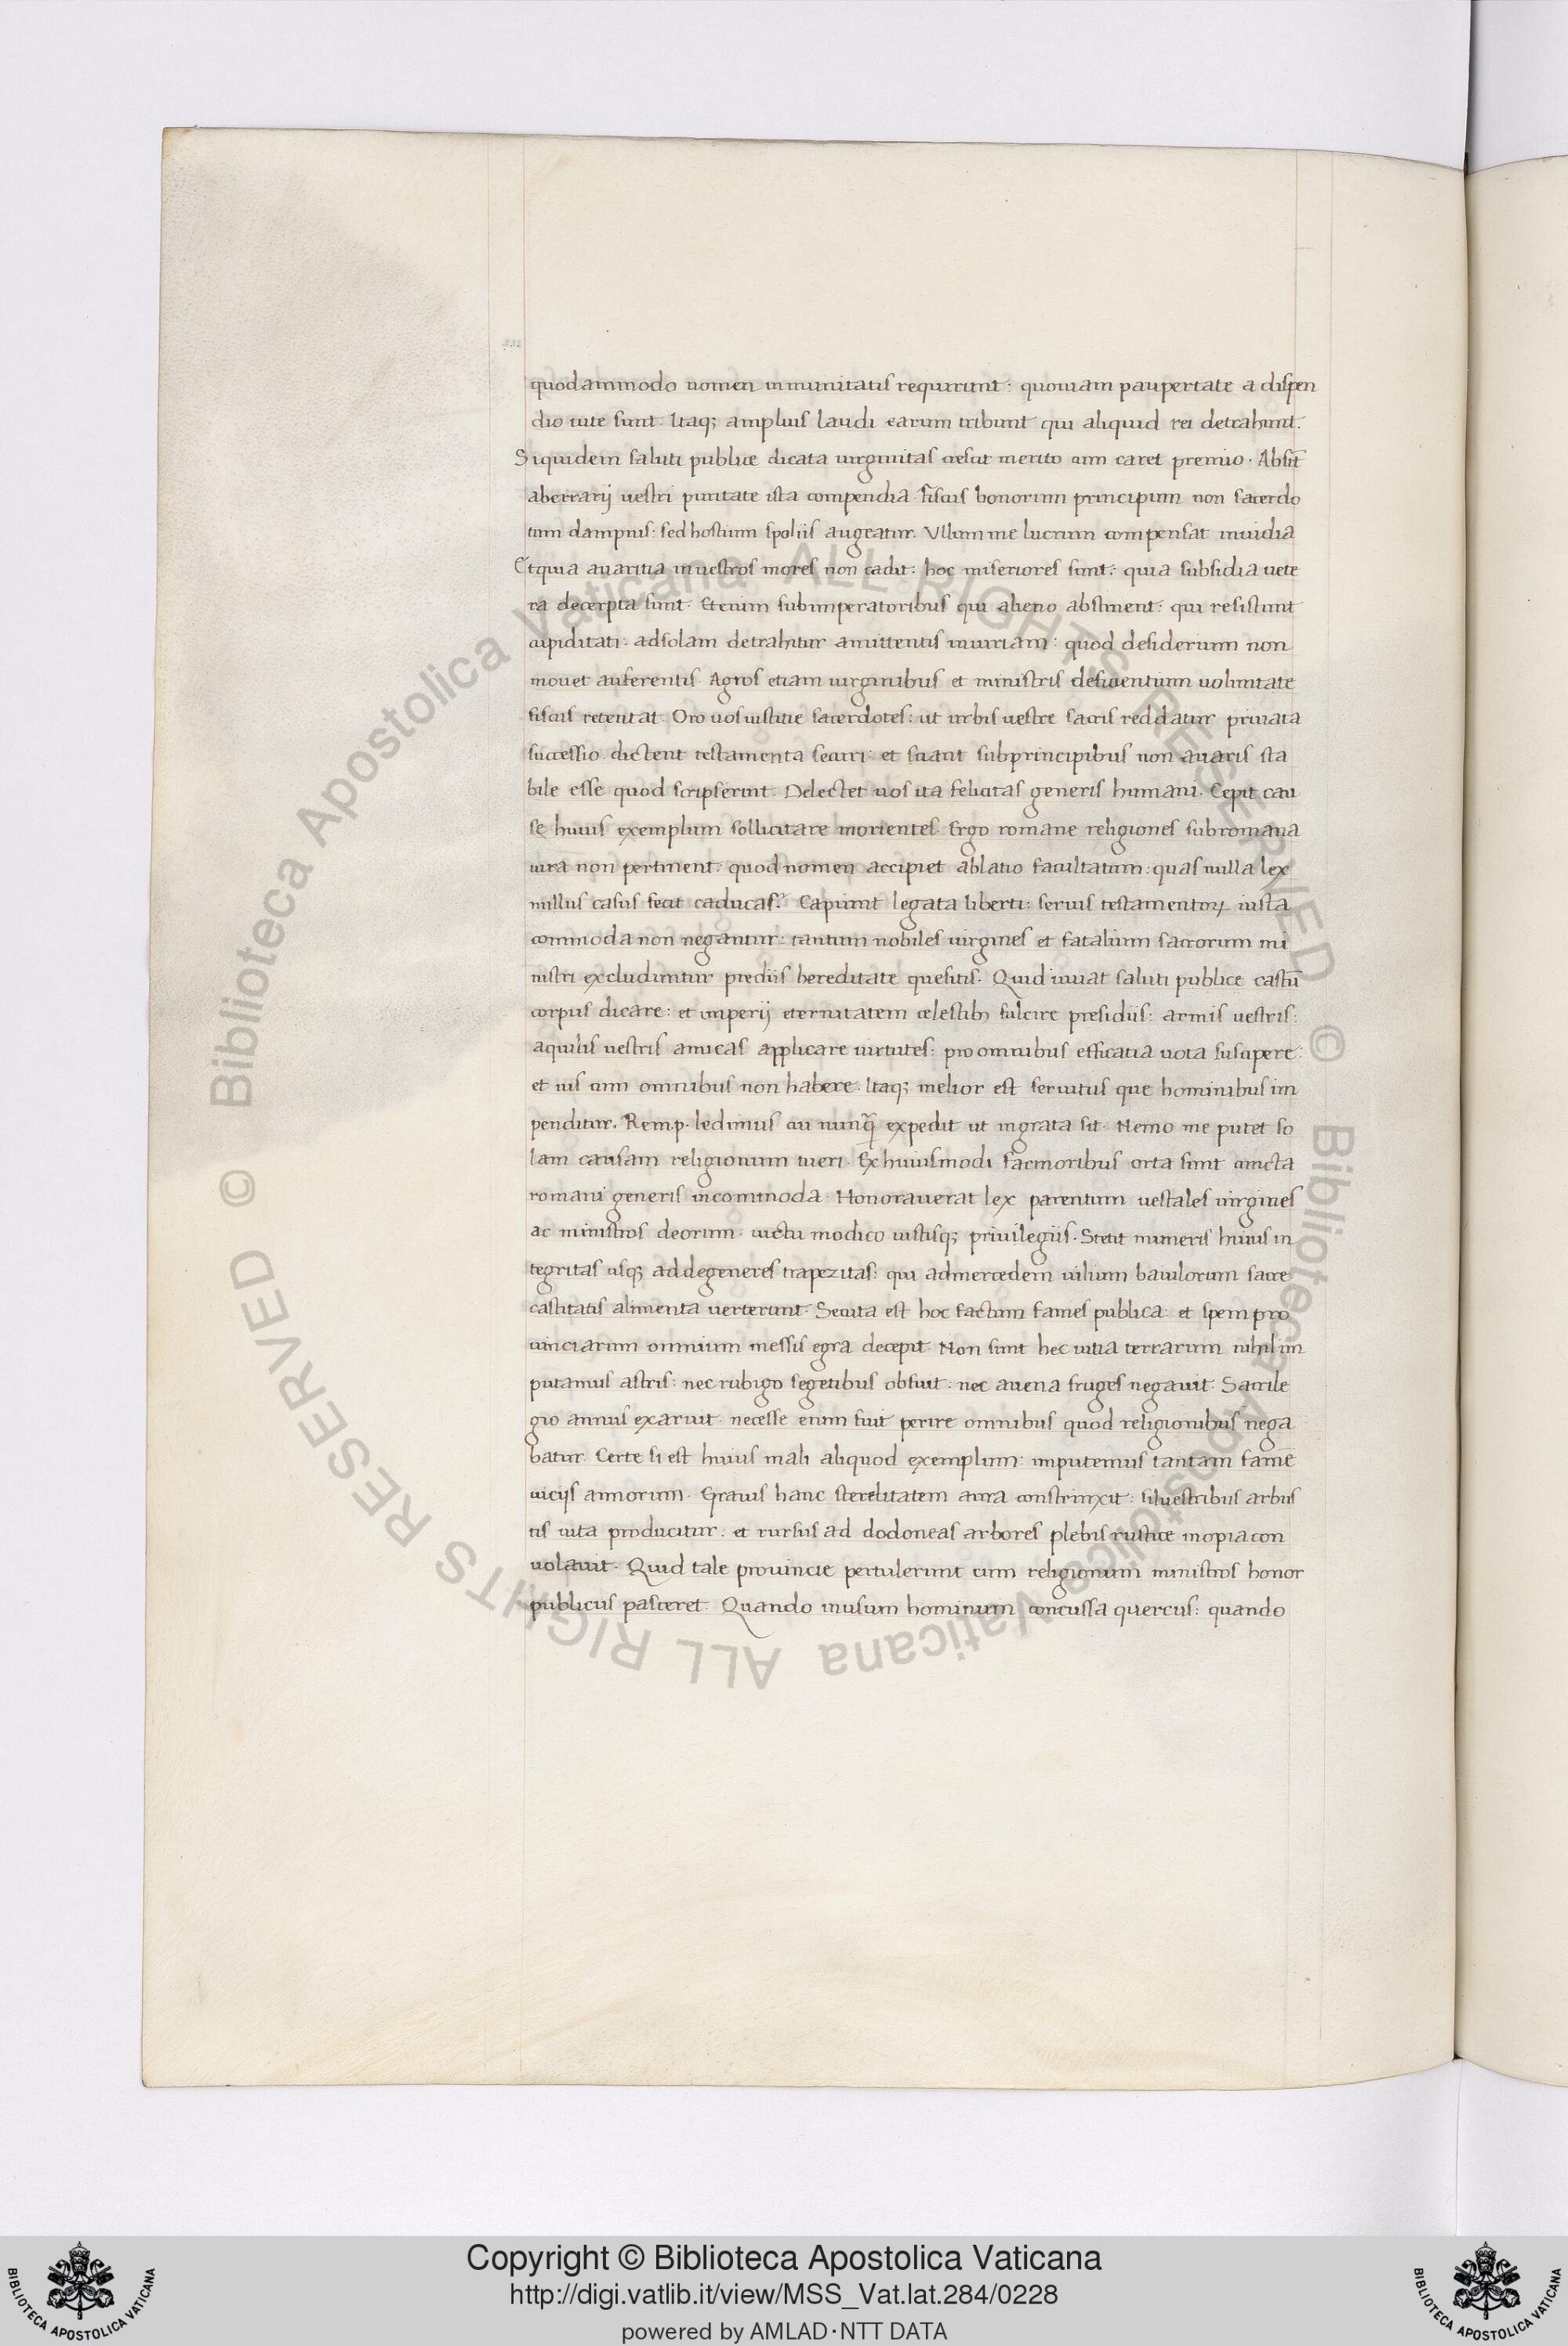 quodammodo nomen inmunitatis requirunt: quoniam paupertate a dispen
dio tute sunt. Itaq; amplius laudi earum tribunt qui aliquid rei detrahunt.
Siquidem saluti publice dicata uirginitas crescit merito cum caret premio. Absit
aberrarij uestri puritate ista compendia. Fiscus bonorum principum non sacerdo
tum dampnis: sed hostium spoliis augeatur. Vllum me lucrum compensat inuidia
Et quia auaritia in uestros mores non cadit: hoc miseriores sunt: quia subsidia uete
ra decerpta sunt. Etenim sub imperatoribus qui alieno abstinent: qui resistunt
cupiditati. ad solam detrahitur amittentis iniuriam: quod desiderium non
mouet auferentis. Agros etiam uirginibus et ministris deficientium uoluntate
fiscus retentat. Oro uos iustitie sacerdotes: ut urbis uestre sacris reddatur priuata
successio. dictent testamenta securi: et sciant sub principibus non auaris sta
bile esse quod scripserint. Delectet uos ita felicitas generis humani. Cepit cau
se huius exemplum sollicitare morientes. Ergo romane religiones sub romana
iura non pertinent: quod nomen accipiet ablatio facultatum: quas nulla lex
nullus casus fecit caducas? Capiunt legata liberti: seruis testamentoꝝ iusta
commoda non negantur: tantum nobiles uirgines et fatalium sacrorum mi
nistri excluduntur prediis hereditate quesitis. Quid iuuat saluti publice castū
corpus dicare: et imperij eternitatem celestibꝫ fulcire presidiis: armis uestris:
aquilis uestris amicas applicare uirtutes: pro omnibus efficatia uota suscipere:
et ius cum omnibus non habere. Itaq; melior est seruitus que hominibus im
penditur. Remp. ledimus cu nunq̃ expedit ut ingrata sit. Nemo me putet so
lam causam religionum tueri. Ex huiusmodi facinoribus orta sunt cuncta
romani generis incommoda. Honorauerat lex parentum uestales uirgines
ac ministros deorum. uictu modico iustisq; priuilegiis. Stetit muneris huius in
tegritas usq; ad degeneres trapezitas: qui ad mercedem uilium baiulorum sacre
castitatis alimenta uerterunt. Secuta est hoc factum fames publica: et spem pro
uinciarum omnium messis egra decepit. Non sunt hec uitia terrarum nihil im
putamus astris: nec rubigo segetibus obfuit: nec auena fruges negauit. Sacrile
gio annus exaruit. necesse enim fuit perire omnibus quod religionibus nega
batur. Certe si est huius mali aliquod exemplum: imputemus tantam famē
uicijs annorum. Grauis hanc sterelitatem aura constrinxit: siluestribus arbus
tis uita producitur. et rursus ad dodoneas arbores plebis rustice inopia con
uolauit. Quid tale prouincie pertulerunt cum religionum ministros honor
publicus pasceret. Quando in usum hominum concussa quercus: quando
© Biblioteca Apostolica Vaticana ALL RIGHTS RESERVED © Biblioteca Apostolica Vaticana ALL RIGHTS RESERVED
Copyright © Biblioteca Apostolica Vaticana
http://digi.vatlib.it/view/MSS_Vat.lat.284/0228
powered by AMLAD·NTT DATA
BIBLIOTECA APOSTOLICA VATICANA
BIBLIOTECA APOSTOLICA VATICANA